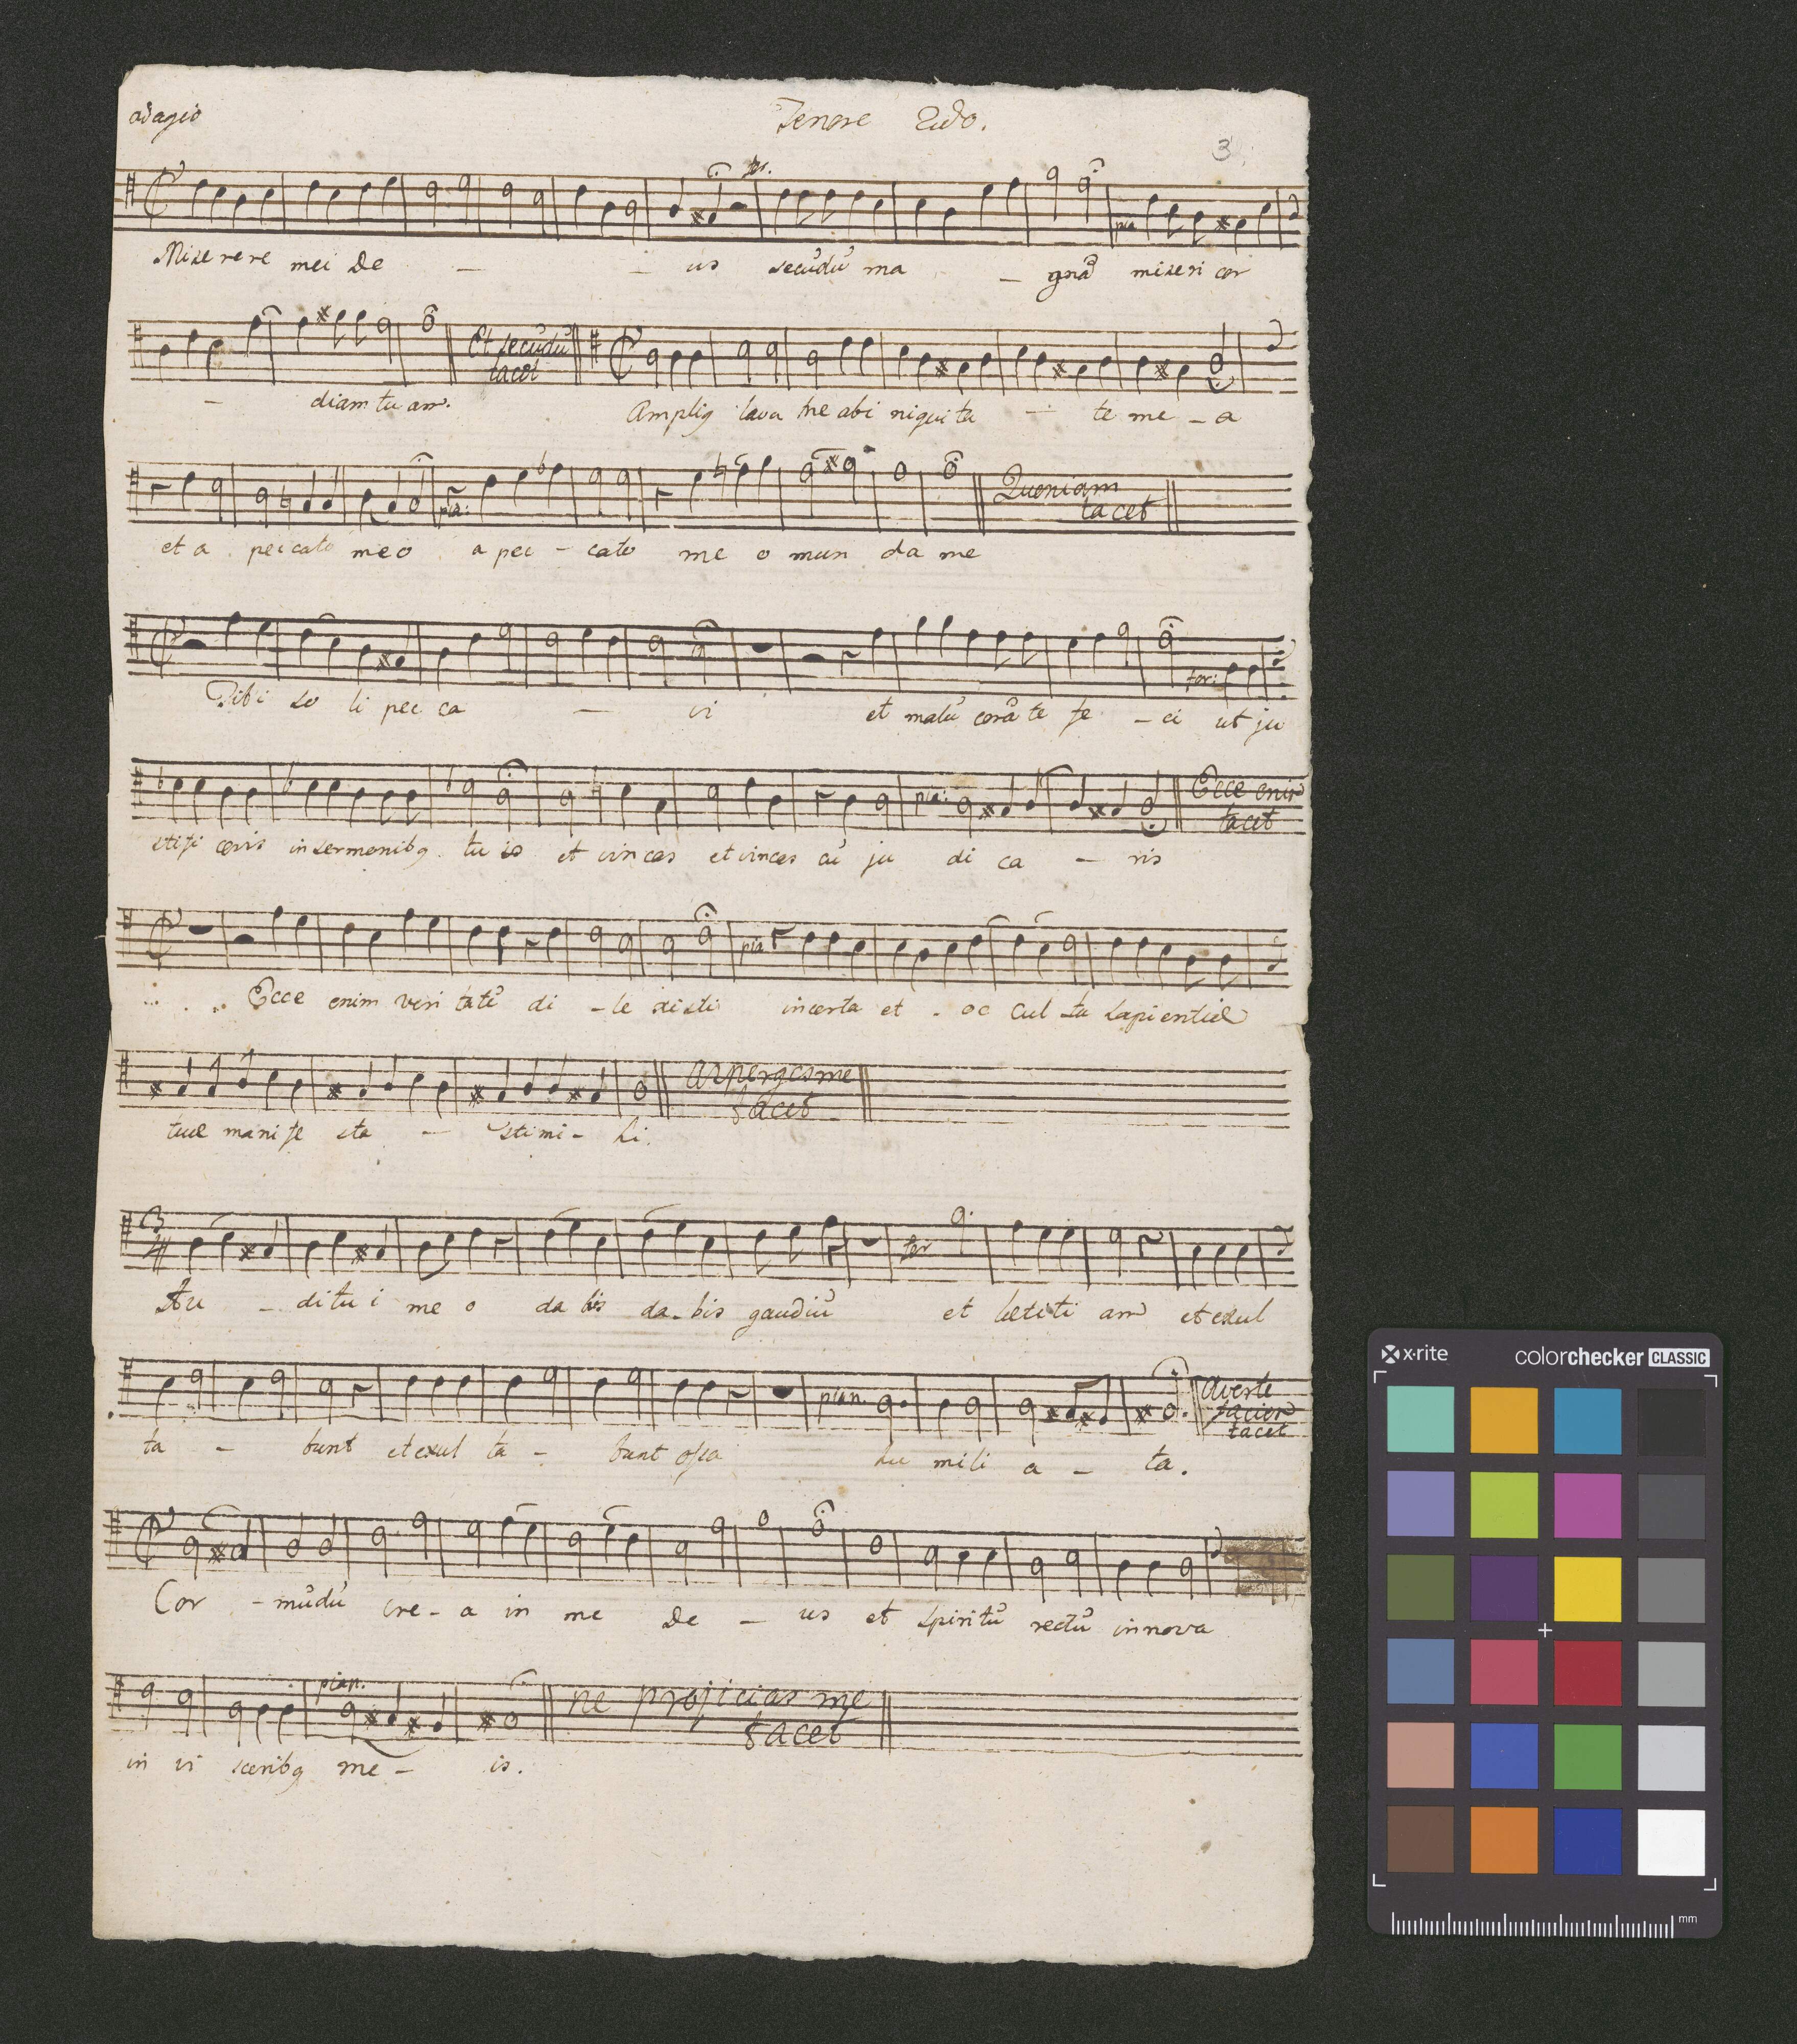 adagio Tenore 2do.
3
Miserere mei De - - us secūdū ma - gnā miseri cor
pia
- diam tu am.
Et secūdū tacet
Ampliq lava me ab i niquita - te me - a
et a peccato meo a pec - cato me o mun da me
pia:
Quoniam tacet
Tibi so li pec ca - vi et malū corā te fe - ci ut ju
for:
stifi ceris in sermonibq tu is et vincas et vincas cū ju di ca - ris
pia:
Ecce enim tacet
Ecce enim veri tatē di - le xisti incerta et - oc cul ta sapientiæ
pia
tuæ manife sta - sti mi - hi.
asperges me tacet
3/4
Au - ditu i me o da bis da - bis gaudiū et lætiti am et exul
for
ta - bunt et exul ta - bunt ossa hu mili a - ta.
pian.
averte faciem tacet
Cor - mūdū cre - a in me De - us et spiritū rectū innova
pian.
in vi sceribq me - is.
ne projicias me tacet
x-rite colorchecker CLASSIC
mm